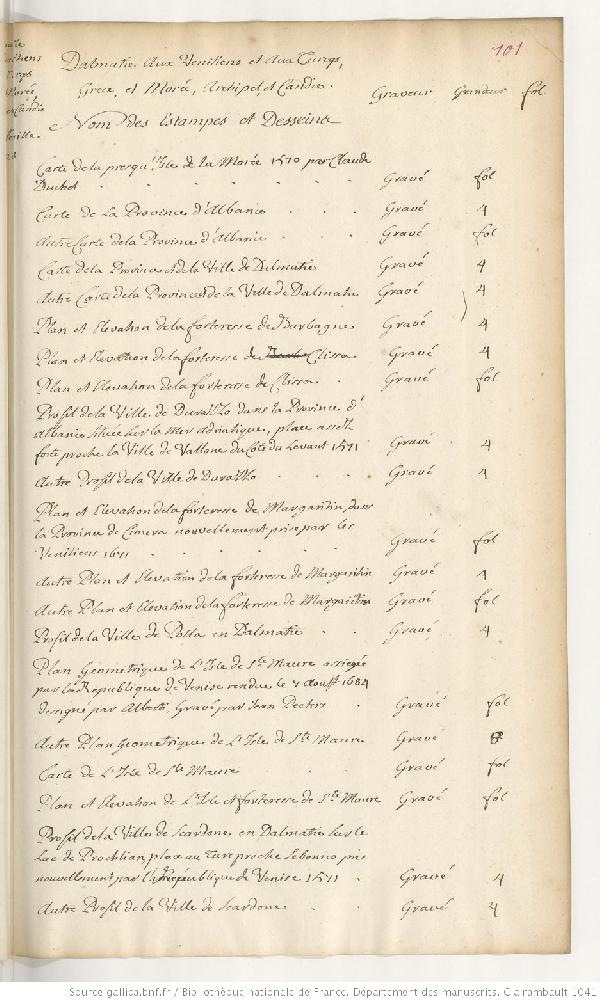 101
Dalmatie aux Venitiens et aux Turqs,
Grece, et Morée, Archipel, et Candie.
Graveur Grandeur fol
Noms des Estampes et Desseins
Carte de la presqu'Isle de la Morée 1570 par Claude
Duchet . . . . . Gravé fol
Carte de La Province d'Albanie . . . Gravé 4
Autre Carte de la Province d'Albanie . . . Gravé fol
Carte de la Province et de la Ville de Dalmatie Gravé 4
Autre Carte de la Province et de la Ville de Dalmatie Gravé 4
Plan et Elevation de la forteresse de Gravé 4
Plan et Elevation de la forteresse de Clissa Gravé 4
Plan et Elevation de la forteresse de Clissa . . Gravé fol
Profil de la Ville de Durazzo dans la Province d'
Albanie située sur la Mer Adriatique, place
forte proche la Ville de Vallone du Coté du Levant 1571 . Gravé 4
Autre Profil de la Ville de Durazzo . . . Gravé 4
Plan et Elevation de la forteresse de Margaritin dans
la Province de Cimera nouvellement prise par les
Venitiens 1571 . . . . . Gravé fol
Autre Plan et Elevation de la forteresse de Margaritin Gravé 4
Autre Plan et Elevation de la forteresse de Margaritin Gravé fol
Profil de la Ville de Polla en Dalmatie . . Gravé 4
Plan Geometrique de L'Isle de Ste Maure assiegée
par la Republique de Venise rendue le 7 Aoust 1684
designé par Alberti, Gravé par Jean Peeters . Gravé fol
Autre Plan Geometrique de L'Isle de Ste Maure Gravé 8
Carte de L'Isle de Ste Maure . . Gravé fol
Plan et Elevation de L'Isle et forteresse de Ste Maure Gravé fol
Profil de la Ville de Scardone en Dalmatie sur le
Lac de Prochlian place au Turc proche Sebenico pris
nouvellement par la Republique de Venise 1571 . Gravé 4
Autre Profil de la Ville de Scardone . . . Gravé 4
Source gallica.bnf.fr / Bibliothèque nationale de France. Département des manuscrits. Clairambault 1041